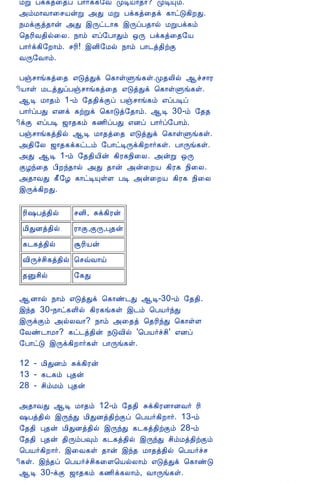 மறு பக்கத்தைப் பார்க்கவே முடியாதா? முடியும்.
அம்மாவாசையன்று அது மறு பக்கத்தைக் காட்டுகிறது.
நமக்குத்தான் அது இருட்டாக இருப்பதால் மறுபக்கம்
தெரிவதில்லை. நாம் எப்போதும் ஒரு பக்கத்தையே
பார்க்கிறோம். சரி! இனிமேல் நாம் பாடத்திற்கு
வருவோம்.
பஞ்சாங்கத்தை எடுத்துக் கொள்ளுங்கள்.முதலில் ஆச்சார
ியாள் மடத்துப்பஞ்சாங்கத்தை எடுத்துக் கொள்ளுங்கள்.
ஆடி மாதம் 1-ம் தேதிக்குப் பஞ்சாங்கம் எப்படிப்
பார்ப்பது எனக் கற்றுக் கொடுத்தோம். ஆடி 30-ம் தேத
ிக்கு எப்படி ஜாதகம் கணிப்பது எனப் பார்ப்போம்.
பஞ்சாங்கத்தில் ஆடி மாதத்தை எடுத்துக் கொள்ளுங்கள்.
அதிலே ஜாதகக்கட்டம் போட்டிருக்கிறார்கள். பாருங்கள்.
அது ஆடி 1-ம் தேதியின் கிரகநிலை. அன்று ஒரு
குழந்தை பிறந்தால் அது தான் அன்றைய கிரக நிலை.
அதாவது கீழே காட்டியுள்ள படி அன்றைய கிரக நிலை
இருக்கிறது.
ரிஷபத்தில் சனி, சுக்கிரன்
மிதுனத்தில் ராகு,குரு,புதன்
கடகத்தில் சூரியன்
விருச்சிகத்தில் செவ்வாய்
தனுசில் கேது
ஆனால் நாம் எடுத்துக் கொண்டது ஆடி-30-ம் தேதி.
இந்த 30-நாட்களில் கிரகங்கள் இடம் பெயர்ந்து
இருக்கும் அல்லவா? நாம் அதைத் தெரிந்து கொள்ள
வேண்டாமா? கட்டத்தின் நடுவில் 'பெயர்ச்சி' எனப்
போட்டு இருக்கிறார்கள் பாருங்கள்.
12 - மிதுனம் சுக்கிரன்
13 - கடகம் புதன்
28 - சிம்மம் புதன்
அதாவது ஆடி மாதம் 12-ம் தேதி சுக்கிரனானவர் ரி
ஷபத்தில் இருந்து மிதுனத்திற்குப் பெயர்கிறார். 13-ம்
தேதி புதன் மிதுனத்தில் இருந்து கடகத்திற்கும் 28-ம்
தேதி புதன் திரும்பவும் கடகத்தில் இருந்து சிம்மத்திற்கும்
பெயர்கிறார். இவைகள் தான் இந்த மாதத்தில் பெயர்ச்ச
ிகள். இந்தப் பெயர்ச்சிகளையெல்லாம் எடுத்துக் கொண்டு
ஆடி 30-க்கு ஜாதகம் கணிக்கலாம், வாருங்கள்.